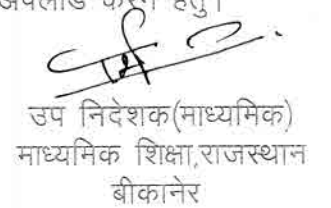 अपलोड करने हेतु।
उप निदेशक(माध्यमिक)
माध्यमिक शिक्षा,राजस्थान
बीकानेर